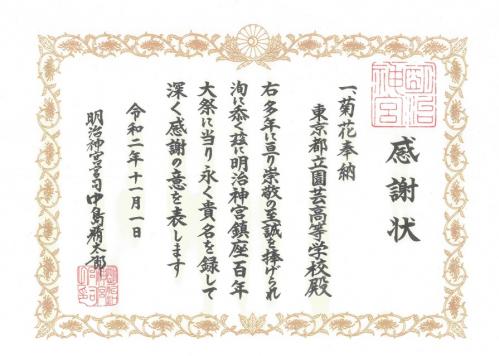 明治
神宮
感謝状
一、菊花奉納
東京都立園芸高等学校殿
右多年に亘り崇敬の至誠を捧げられ
洵に忝く茲に明治神宮鎮座百年
大祭に当り永く貴名を録して
深く感謝の意を表します
令和二年十一月一日
明治神宮宮司中島精太郎